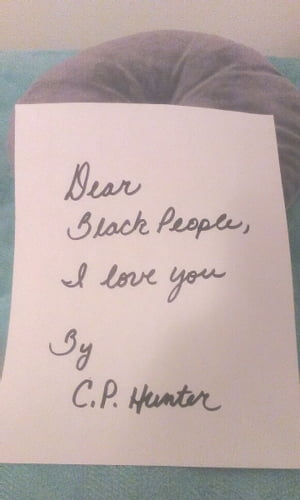 Dear
Black People,
I love you
By
C.P. Hunter